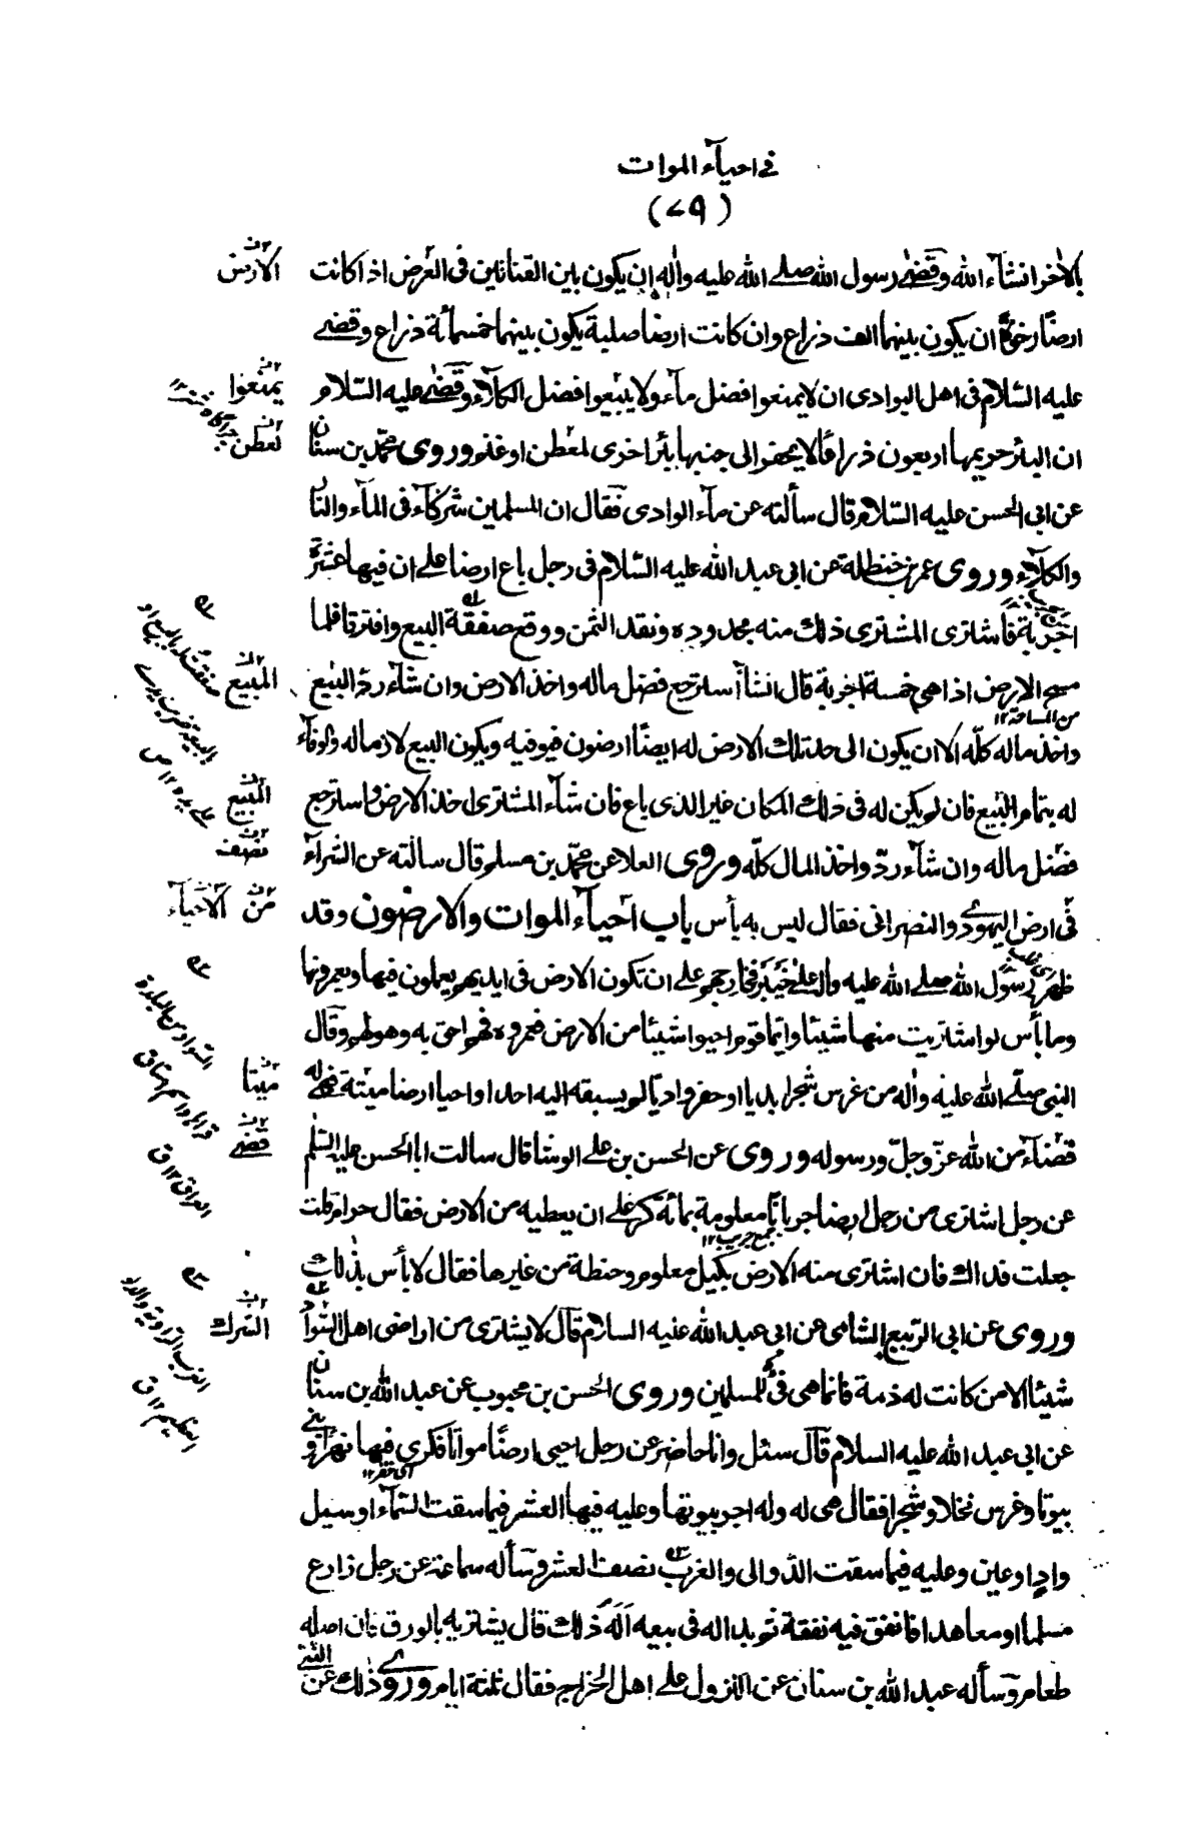 في احيآء الموات
(٧٩)
بالاخر انشآء الله وقضى رسول الله صلے الله عليه واله ان يكون بين القناتين فى العرض اذا كانت
ارضًا رخوة ان يكون بينهما الف ذراع وان كانت ارضا صلبة يكون بينهما خمسمأئة ذراع وقضے
عليه السّلام فى اهل البوادى ان لا يمنعوا فضل مآء ولا يبيعوا فضل الكلآء وقضے عليه السّلام
ان البئر حريمها اربعون ذراعًا لا يحفر الى جنبها بئر اخرى لمعطن او غنم وروى محمّد بن سنان
عن ابى الحسن عليه السّلام قال سألته عن مآء الوادى فقال ان المسلمين شركآء فى المآء والنار
والكلآء وروى عمر بن حنظلة عن ابى عبد الله عليه السّلام فى رجل باع ارضا على ان فيها عشرة
اجربة فاشترى المشترى ذلك منه بحدوده ونقد الثمن ووقع صفقة البيع وافترقا فلما
مسح الارض اذا هى خمسة اجربة قال انشآء استرجع فضل ماله واخذ الارض وان شآء ردّ البيع
من المساحة ١٢
واخذ ماله كلّه الا ان يكون الى حد تلك الارض له ايضًا ارضون فيوفيه ويكون البيع لازما له والوفآء
له بتمام البيع فان لم يكن له فى ذلك المكان غير الذى باع فان شآء المشترى اخذ الارض واسترجع
فضل ماله وان شآء ردّ واخذ المال كلّه وروى العلا عن محمّد بن مسلم قال سالته عن الشرآء
فى ارض اليهود والنصرانى فقال ليس به بأس باب احيآء الموات والارضون وقد
ظهر رسول الله صلے الله عليه واله على خيبر فخارجهم على ان تكون الارض فى ايديهم يعملون فيها ويعمرونها
وما بأس لو اشتريت منها شيئا وايّما قوم احيوا شيئا من الارض فعمروه فهم احق به وهو لهم وقال
النبى صلّے الله عليه واله من غرس شجرا بديا او حفر واديا لم يسبقه اليه احد او احيا ارضا ميتة فهى له
قضآء من الله عزّ وجلّ ورسوله وروى عن الحسن بن على الوشا قال سالت ابا الحسن عليه السّلم
عن رجل اشترى من رجل ارضا جربانًا معلومة بمائة كر على ان يعطيه من الارض فقال حرام قلت
جمع جريب ١٢
جعلت فداك فان اشترى منه الارض بكيل معلوم وحنطة من غيرها فقال لا بأس بذلك
وروى عن ابى الربيع الشامى عن ابى عبد الله عليه السلام قال لا يشترى من اراضى اهل السّواد
شيئا الا من كانت له ذمة فانما هى فئ للمسلمين وروى الحسن بن محبوب عن عبد الله بن سنان
عن ابى عبد الله عليه السلام قال سئل وانا حاضر عن رجل احيى ارضًا مواتا فكرى فيها نهرًا وبنے
اى حفر ١٢
بيوتا وغرس نخلا وشجرا فقال هى له وله اجر بيوتها وعليه فيها العشر فيما سقت السّمآء او سيل
واد او عين وعليه فيما سقت الدّوالى والغرب نصف العشر وسأله سماعة عن رجل زارع
مسلما او معاهدا فانفق فيه نفقة ثم بدا له فى بيعه اله ذلك قال يشتريه بالورق فان اصله
طعام وسأله عبد الله بن سنان عن النزول على اهل الخراج فقال ثلثة ايام وروى ذلك عن النبے
الارض
يمنعوا
لعطن
المبيع
المبيع
نصف
من الاحياء
ميتا
قضے
الشرك
السّواد من البلدة
قراها واسم رستاق
العراق ١٢ ق
الغرب الراوية والدلو
العظيم ١٢ ق